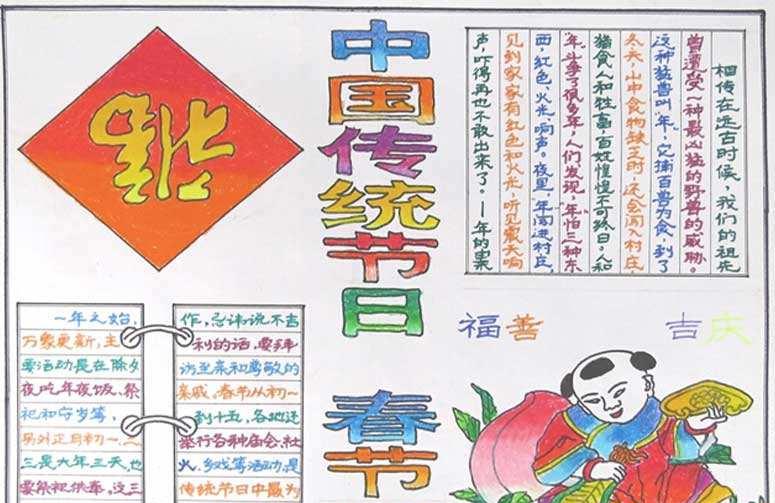 福
中国传统节日
春节
相传在远古时候，我们的祖先
曾遭受一种最凶猛的野兽的威胁。
这种猛兽叫“年”，它捕百兽为食，到了
冬天，山中食物缺乏时，还会闯入村庄，
猎食人和牲畜，百姓惶惶不可终日。人和
“年”斗争了很多年，人们发现，“年”怕三种东
西，红色、火光、响声。夜里，年闯进村庄，
见到家家有红色和火光，听见震天响
声，吓得再也不敢出来了。—年的
福善 吉庆
一年之始，
万象更新，主
要活动是在除夕
夜吃年夜饭、祭
祀和守岁等，
另外正月初一、二
三是大年三天，也
要祭祀供奉。这三
作，忌讳说不吉
利的话，要拜
访至亲和尊敬的
亲戚。春节从初一
到十五，各地还
举行各种庙会、社
火、乡戏等活动，是
传统节日中最为